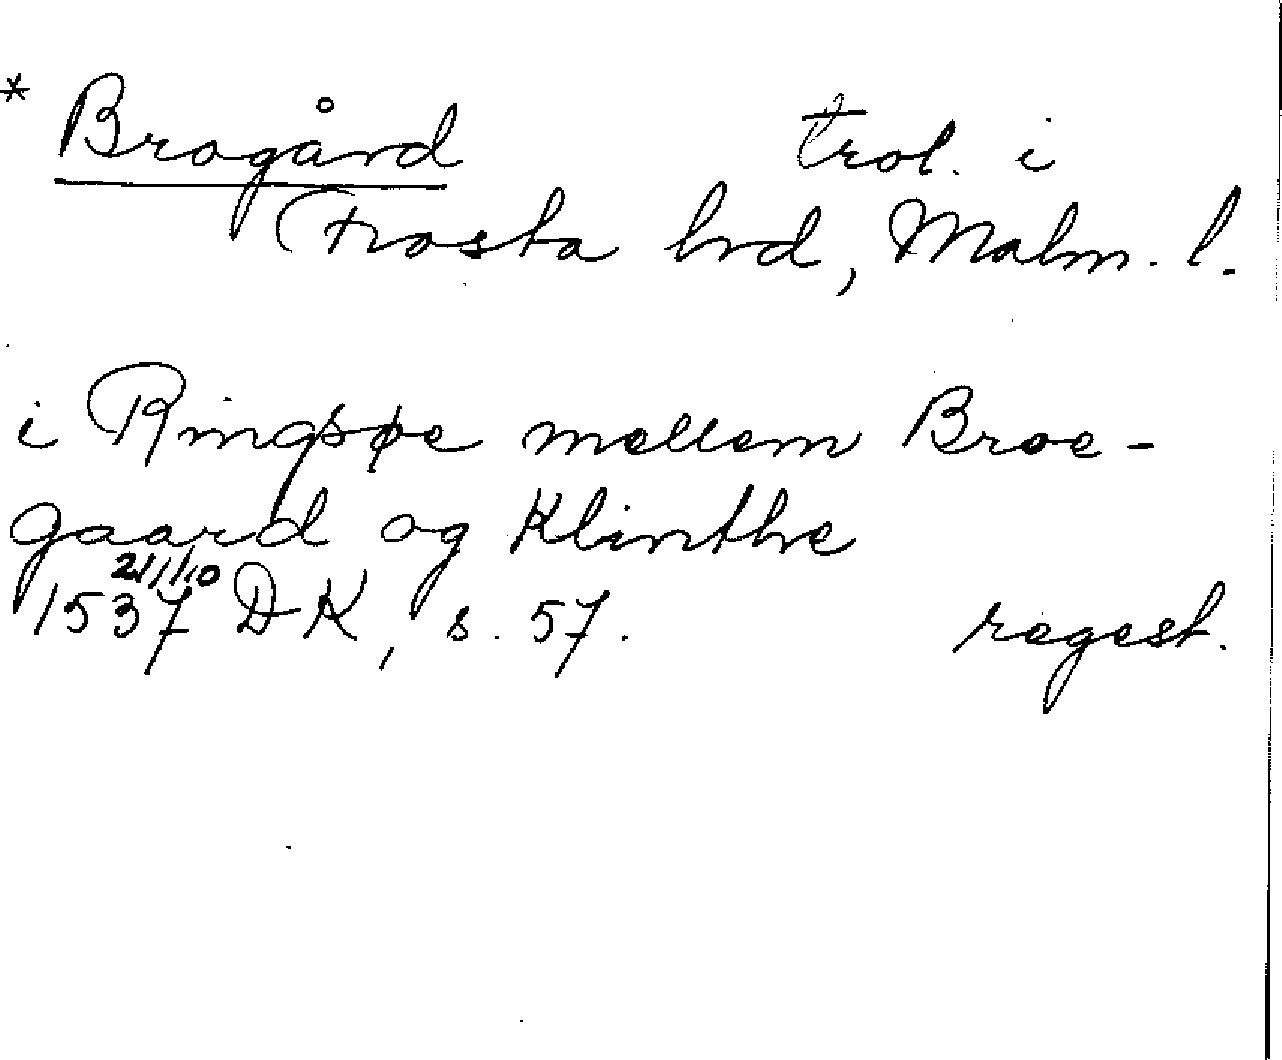 * Brogård trol. i
Frosta hrd, Malm. l.
i Ringsøe mellem Broe-
gaard og Klinthe
21/10
1537 DK, s. 57. regest.